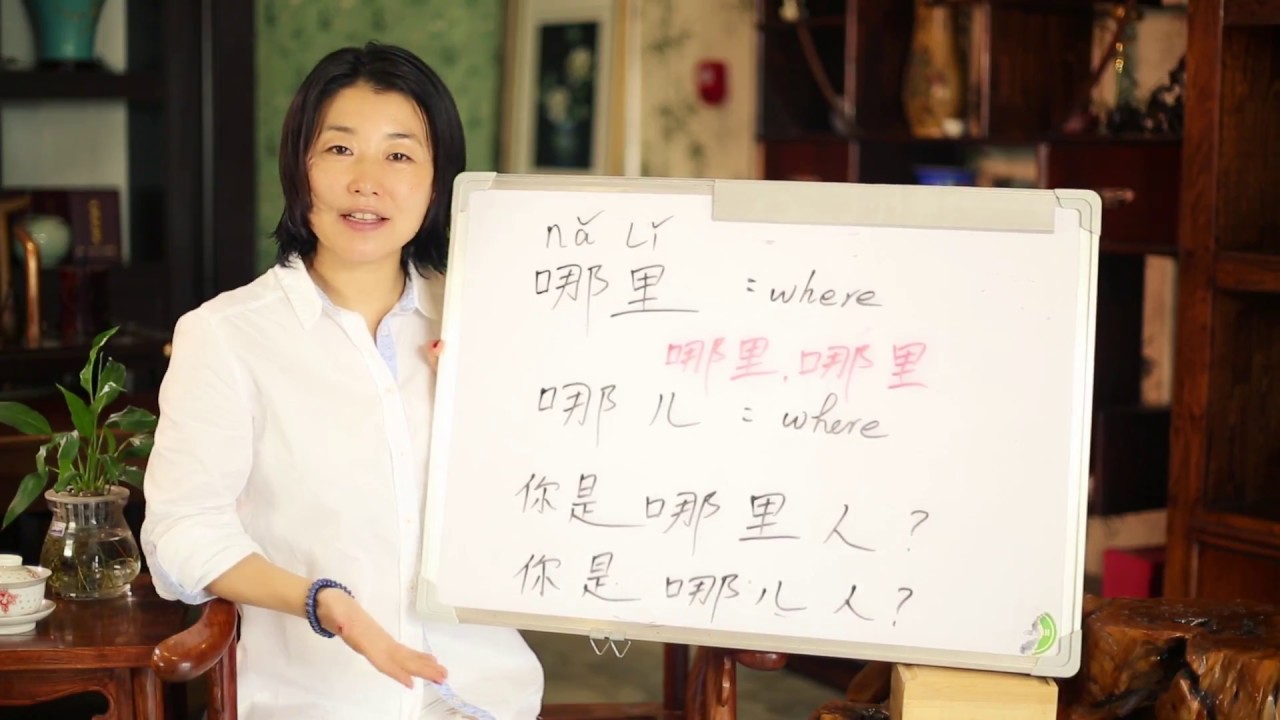 nǎ lǐ
哪里 : where
哪里,哪里
哪儿 : where
你是哪里人?
你是哪儿人?